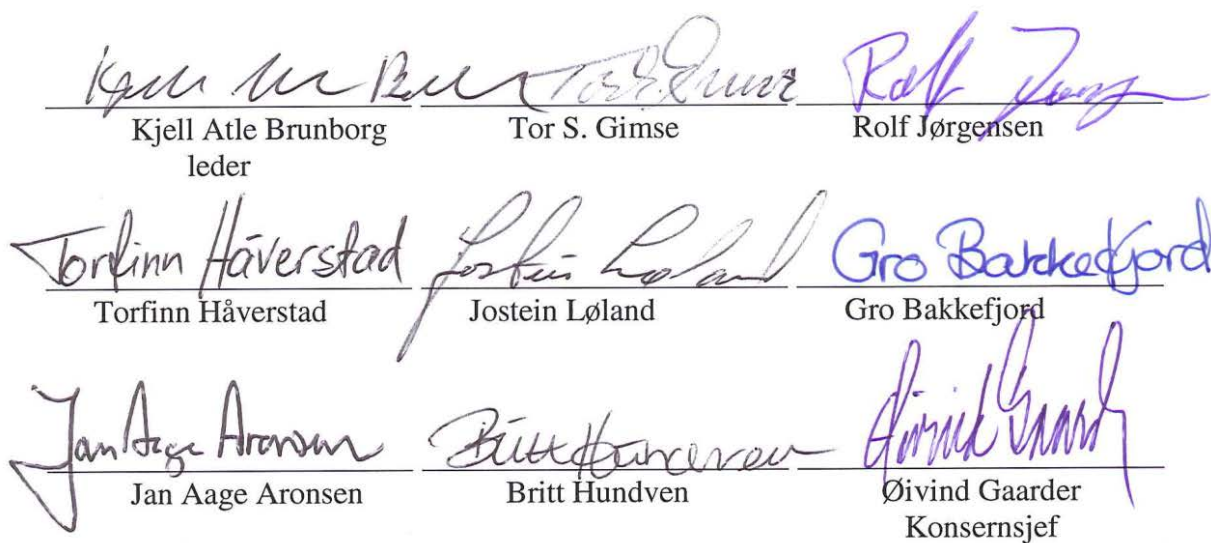 Kjell Atle Brunborg
leder
Tor S. Gimse
Rolf Jørgensen
Torfinn Håverstad
Torfinn Håverstad
Jostein Løland
Jostein Løland
Gro Bakkefjord
Gro Bakkefjord
Jan Aage Aronsen
Jan Aage Aronsen
Britt Hundven
Øivind Gaarder
Konsernsjef